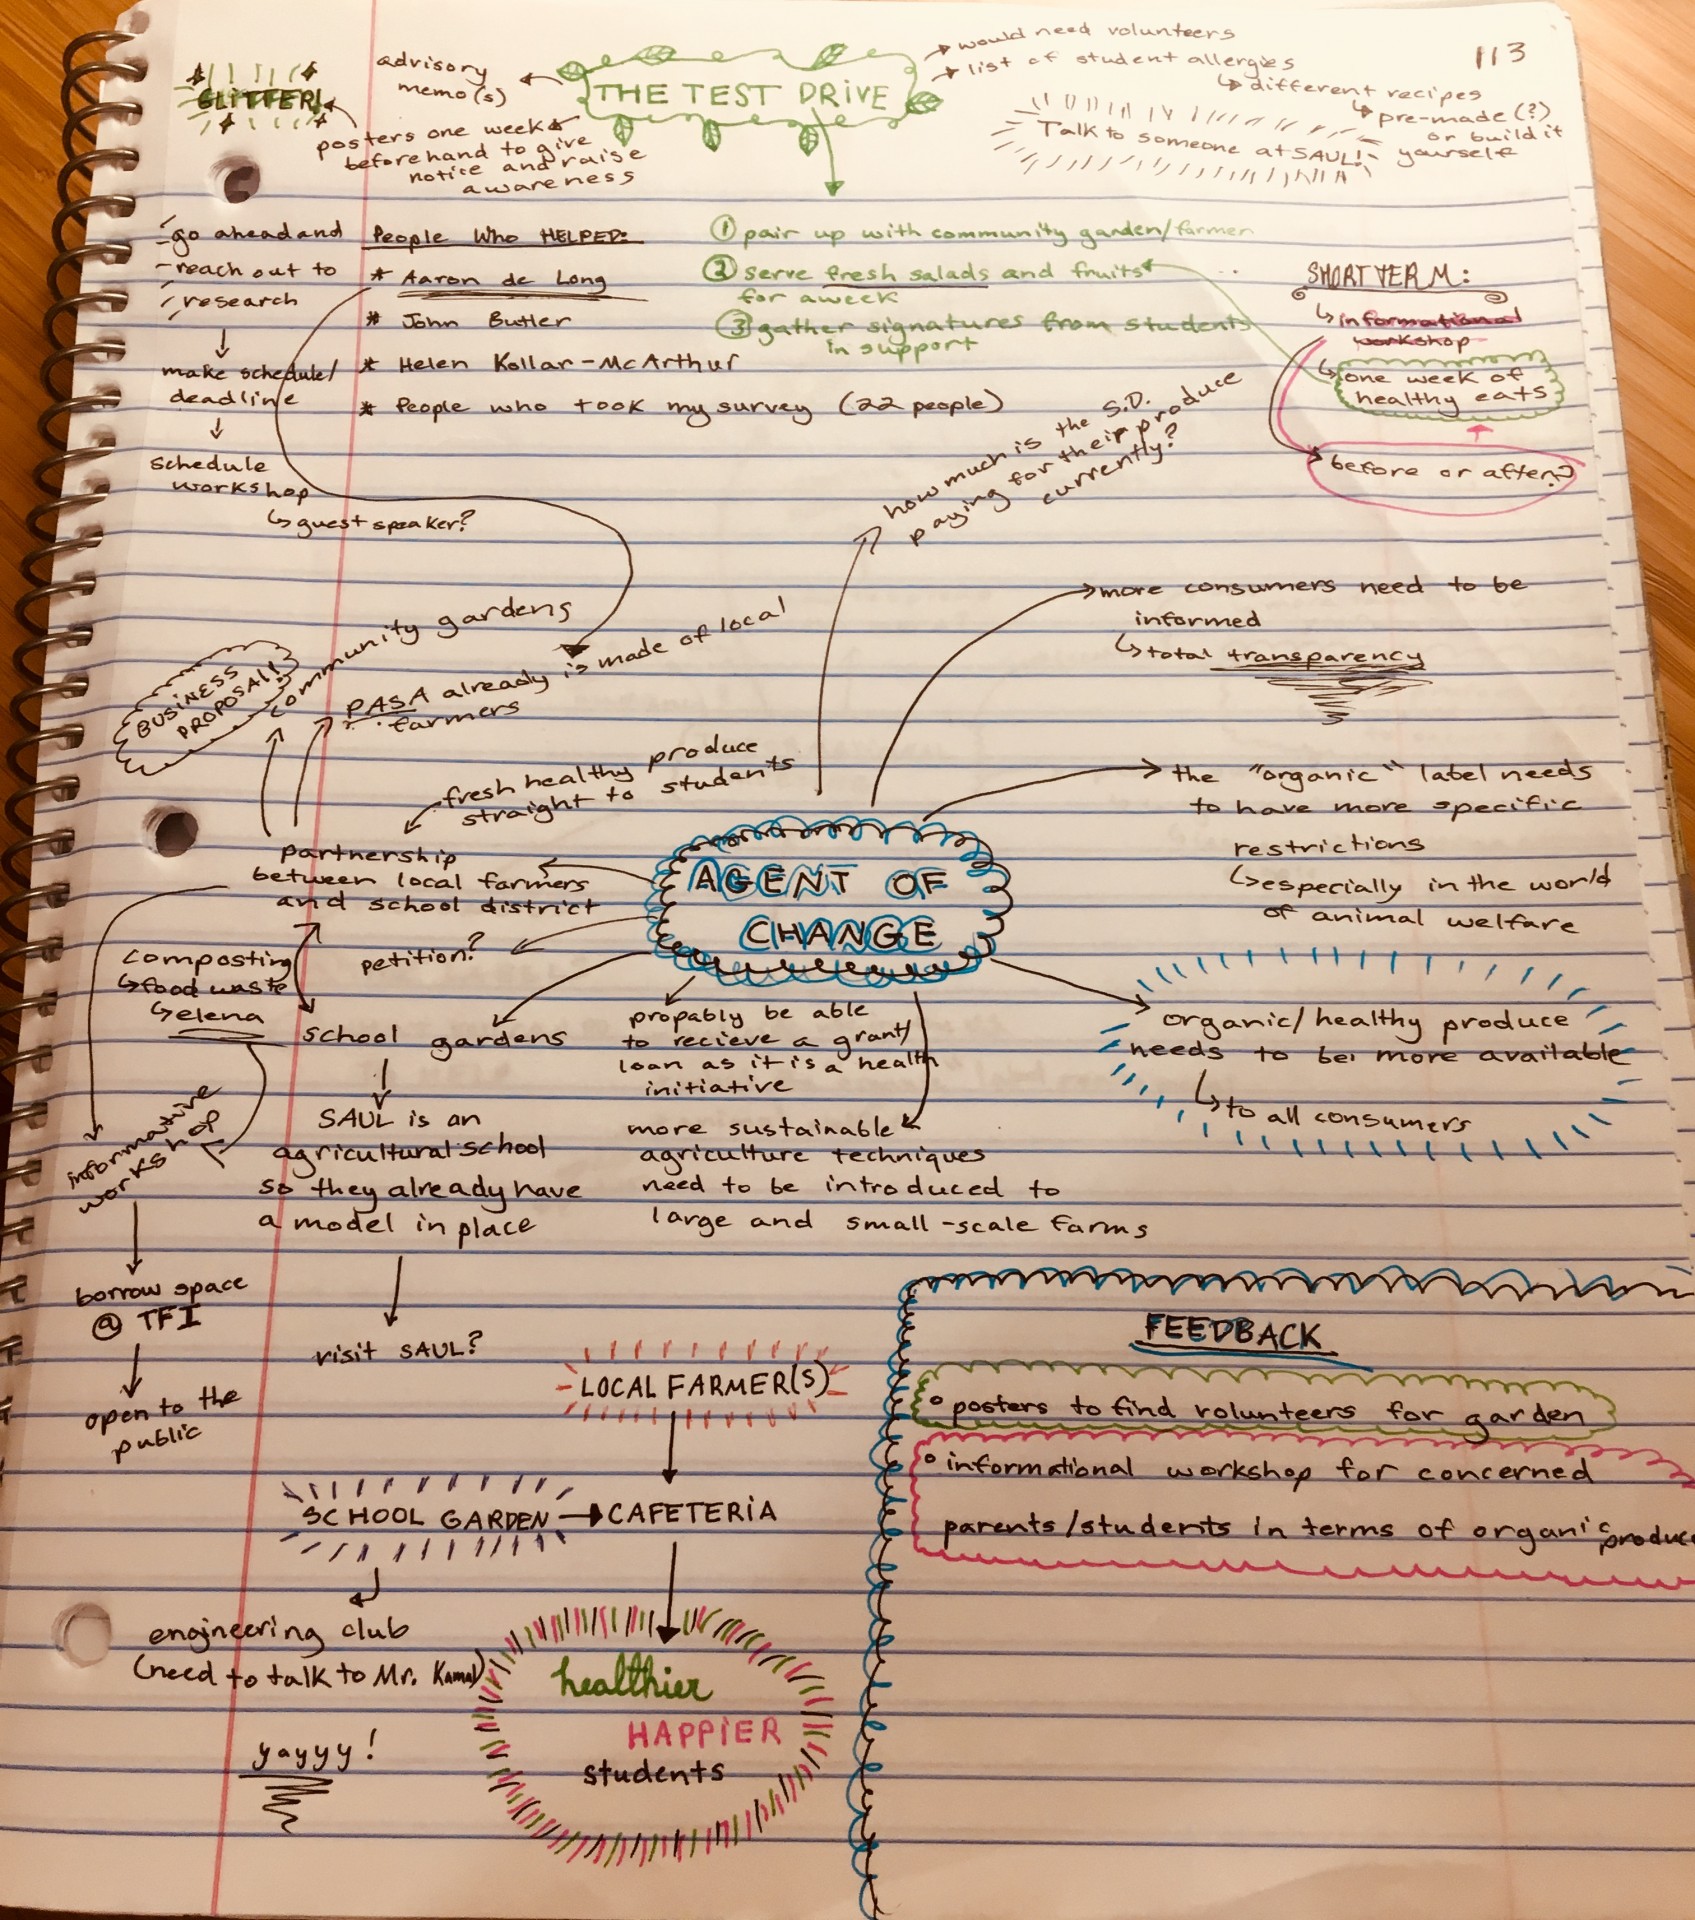 113
GLITTER!
advisory
memo(s)
THE TEST DRIVE
would need volunteers
list of student allergies
different recipes
pre-made (?)
or build it
yourself
Talk to someone at SAUL!
posters one week
beforehand to give
notice and raise
awareness
go ahead and
reach out to
research
make schedule/
deadline
schedule
workshop
guest speaker?
People Who HELPED:
* Aaron de Long
* John Butler
* Helen Kollar-McArthur
* People who took my survey (22 people)
① pair up with community garden/farmer
② serve fresh salads and fruits
for a week
③ gather signatures from students
in support
SHORT TERM:
informational
workshop
one week of
healthy eats
before or after?
how much is the S.D.
paying for their produce
currently?
more consumers need to be
informed
total transparency
BUSINESS
PROPOSAL!
community gardens
PASA already is made of local
farmers
fresh healthy produce
straight to students
the "organic" label needs
to have more specific
restrictions
especially in the world
of animal welfare
AGENT OF
CHANGE
partnership
between local farmers
and school district
petition?
composting
food waste
elena
school gardens
propably be able
to recieve a grant/
loan as it is a health
initiative
organic/healthy produce
needs to be more available
to all consumers
informative
workshop
SAUL is an
agricultural school
so they already have
a model in place
more sustainable
agriculture techniques
need to be introduced to
large and small-scale farms
borrow space
@ TFI
open to the
public
visit SAUL?
LOCAL FARMER(S)
SCHOOL GARDEN
CAFETERIA
engineering club
(need to talk to Mr. Kamal)
yayyy!
healthier
HAPPIER
students
FEEDBACK
° posters to find volunteers for garden
° informational workshop for concerned
parents/students in terms of organic produce